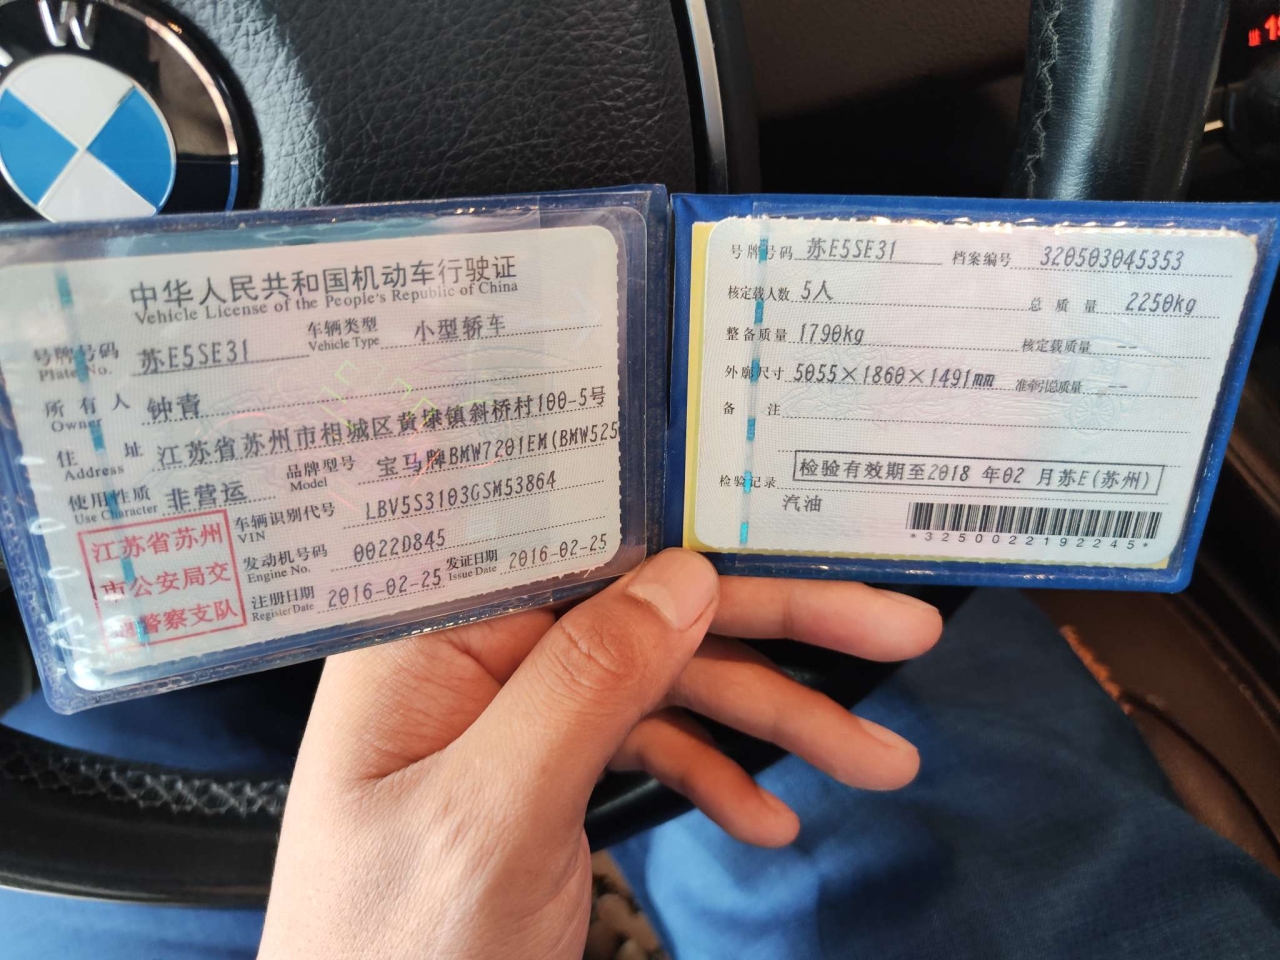 W
中华人民共和国机动车行驶证
Vehicle License of the People's Republic of China
号牌号码 苏E5SE31 车辆类型 小型轿车
Plate No. Vehicle Type
所有人 钟青
Owner
住址 江苏省苏州市相城区黄埭镇斜桥村100-5号
Address
使用性质 非营运 品牌型号 宝马牌BMW7201EM(BMW525
Use Character Model
车辆识别代号 LBV5S3103GSM53864
VIN
发动机号码 0022D845
Engine No.
注册日期 2016-02-25 发证日期 2016-02-25
Register Date Issue Date
江苏省苏州
市公安局交
通警察支队
号牌号码 苏E5SE31 档案编号 320503045353
核定载人数 5人 总质量 2250kg
整备质量 1790kg 核定载质量 --
外廓尺寸 5055×1860×1491mm 准牵引总质量 --
备注
检验记录 检验有效期至2018年02月苏E(苏州)
汽油
*3250022192245*